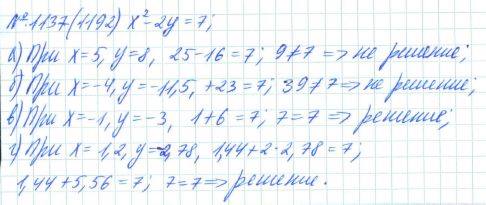 № 1137(1192) x²-2y=7;
а) При x=5, y=8, 25-16=7; 9≠7 => не решение;
б) При x=-4, y=-11,5, +23=7; 39≠7 => не решение;
в) При x=-1, y=-3, 1+6=7; 7=7 => решение;
г) При x=1,2, y=-2,78, 1,44+2·2,78=7;
1,44+5,56=7; 7=7 => решение.